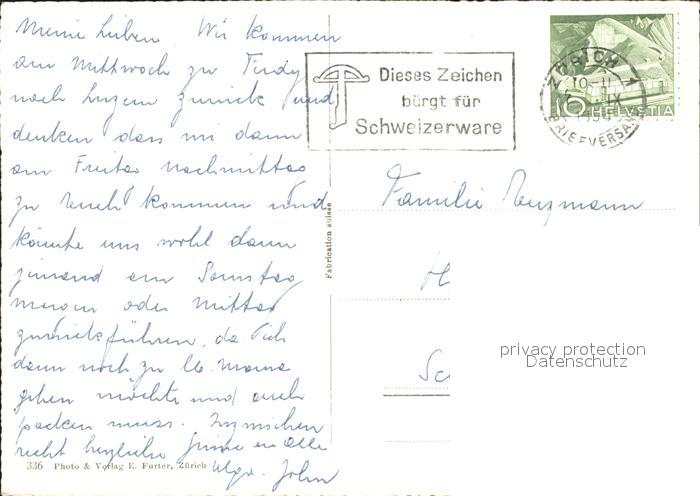 Meine Lieben Wir kommen
am Mittwoch zu Ferdy
nach Luzern zurück und
denken dass wir dann
am Freitag nachmittag
zu Euch kommen und
könnte uns wohl dann
jemand am Samstag
morgen oder Mittag
zurückführen, da ich
dann noch zu
gehen möchte und auch
packen muss. Inzwischen
recht herzliche Grüsse an Alle
John
Dieses Zeichen
bürgt für
Schweizerware
ZÜRICH 1
BRIEFVERSAND
10
HELVETIA
Familie
H
Sc
Fabrication suisse
privacy protection
Datenschutz
336 Photo & Verlag E. Furter, Zürich